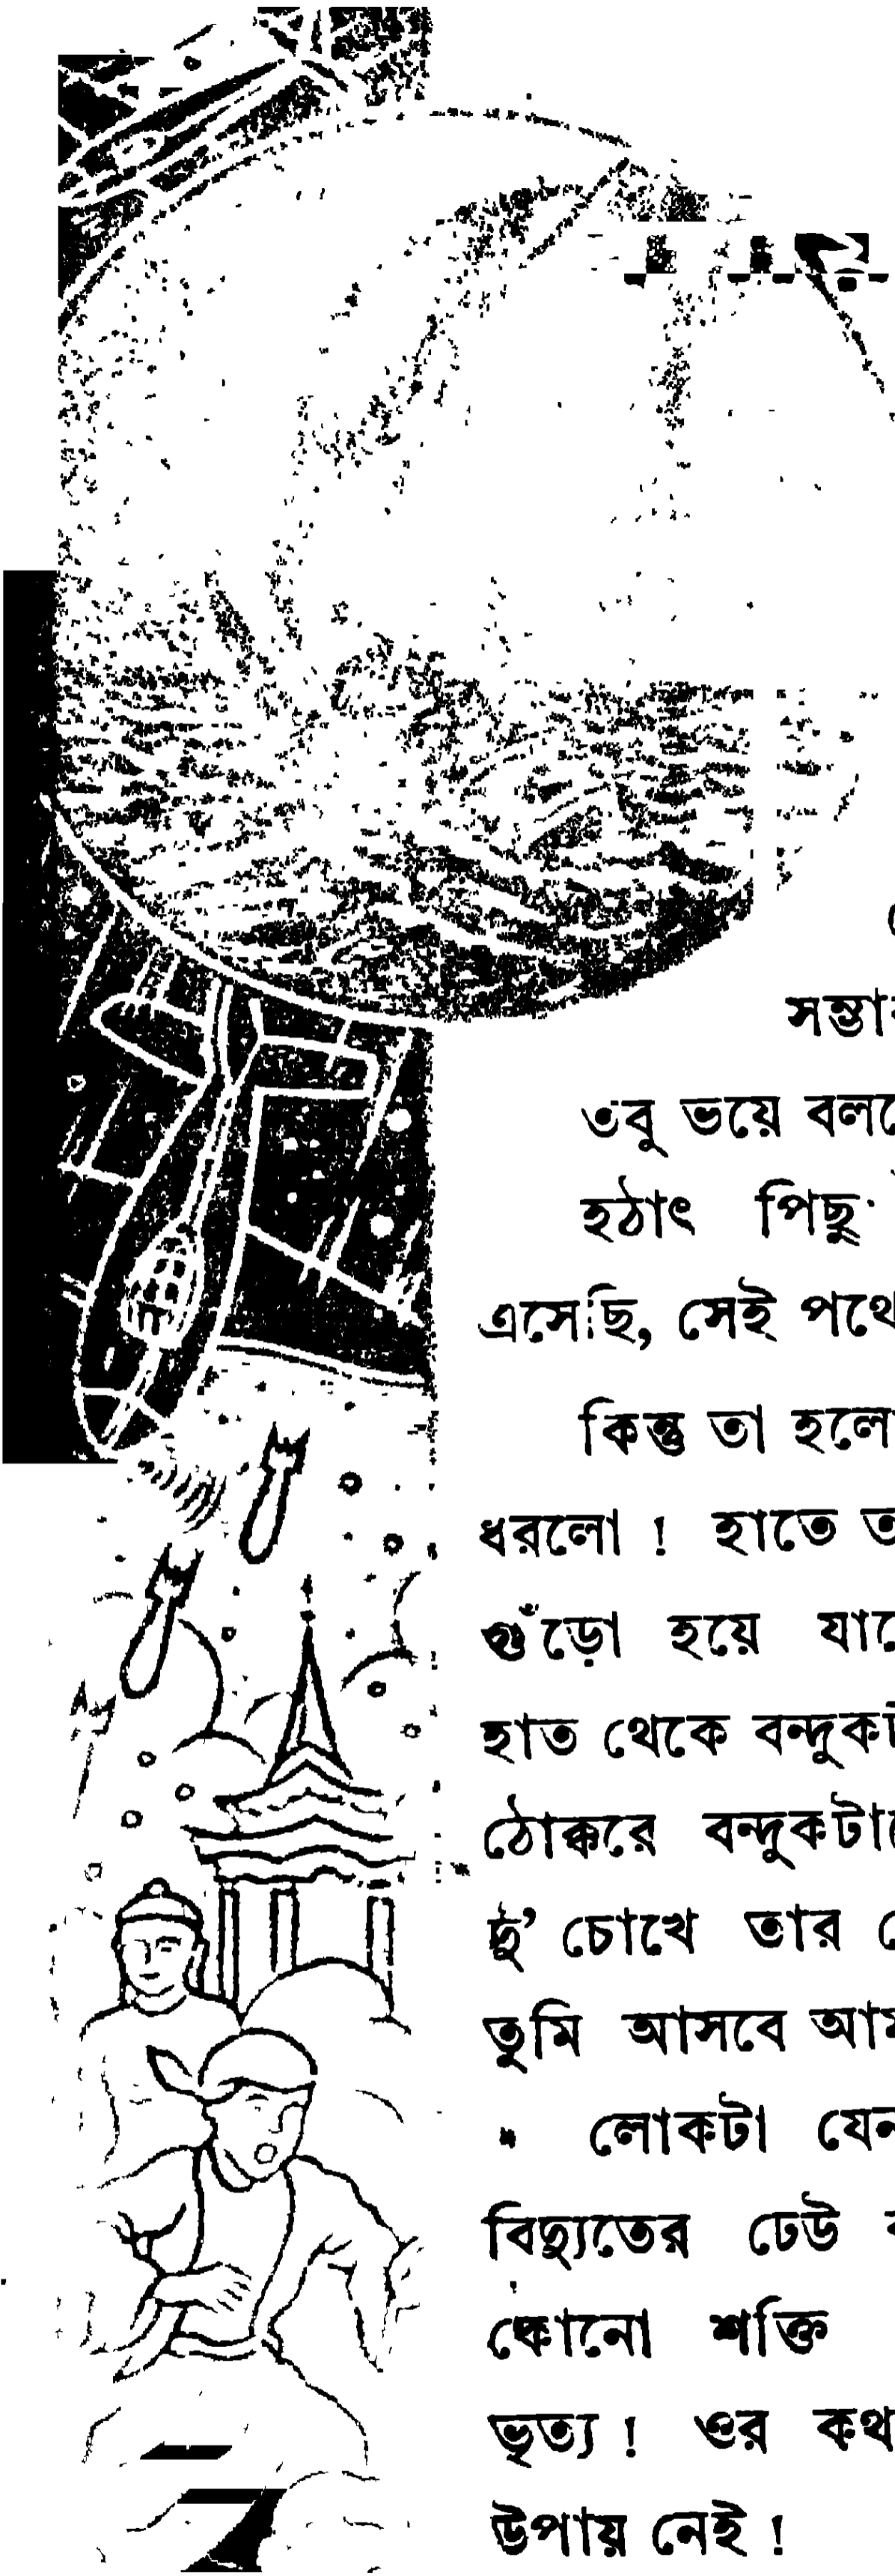 সম্ভাব
তবু ভয়ে বল
হঠাৎ পিছু
এসেছি, সেই পথে
কিন্তু তা হলে
ধরলো ! হাতে ত
গুঁড়ো হয়ে যা
হাত থেকে বন্দুকট
ঠোক্করে বন্দুকটা
দু’ চোখে তার
তুমি আসবে আম
লোকটা যেন
বিদ্যুতের ঢেউ
কোনো শক্তি
ভৃত্য ! ওর কথ
উপায় নেই !